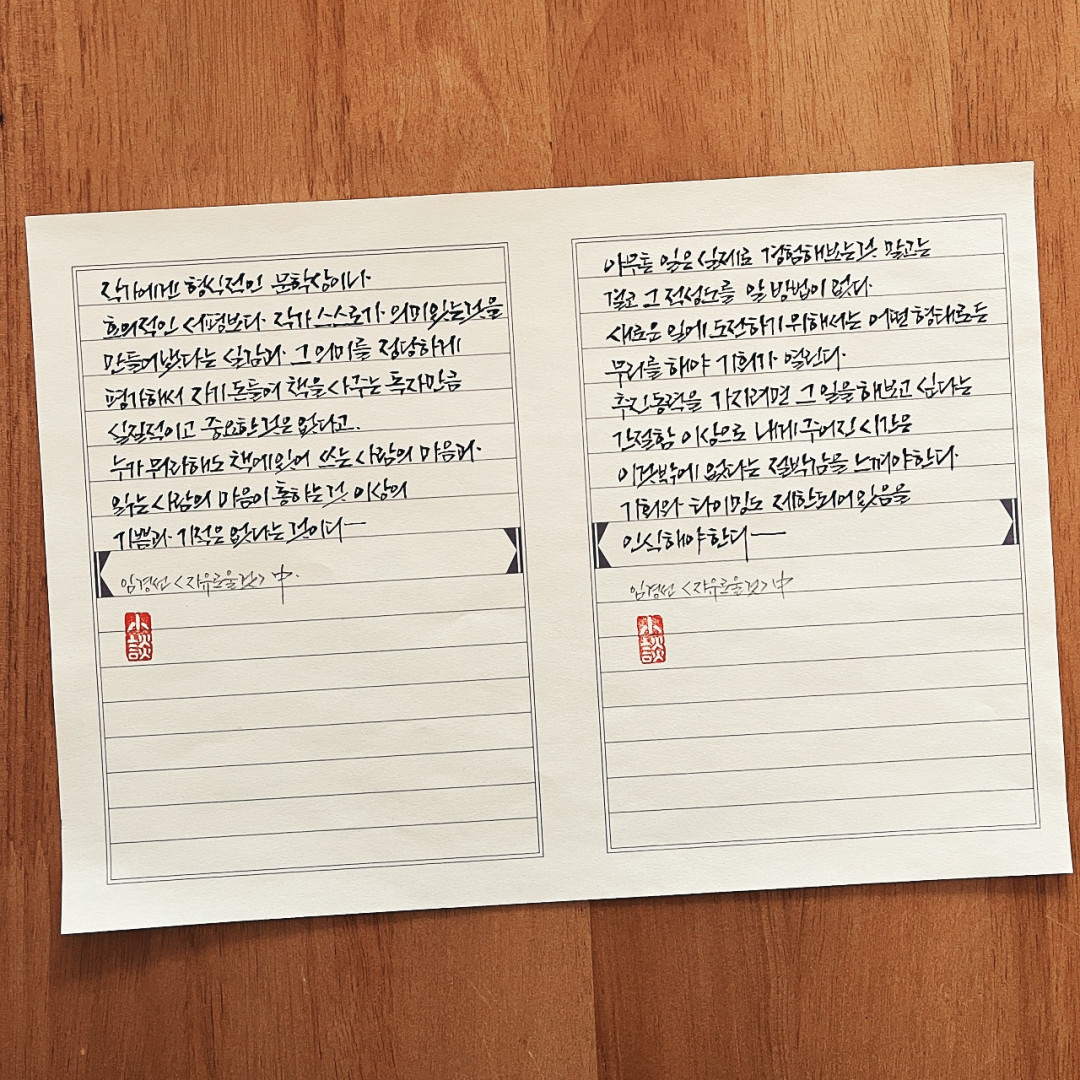 작가에겐 형식적인 문학상이나
호의적인 서평보다 작가 스스로가 의미있는것을
만들어냈다는 실감과 그 의미를 정당하게
평가해서 자기 돈들여 책을 사주는 독자만큼
실질적이고 중요한것은 없다고.
누가 뭐라해도 책에있어 쓰는 사람의 마음과
읽는 사람의 마음이 통하는것 이상의
기쁨과 기적은 없다는 것이다―
임경선 <자유로울 것> 中.
小談
아무튼 일은 실제로 경험해보는것 말고는
결코 그 적성도를 알 방법이 없다.
새로운 일에 도전하기 위해서는 어떤 형태로든
무리를 해야 기회가 열린다.
추진동력을 가지려면 그 일을 해보고 싶다는
간절함 이상으로 내게 주어진 시간은
이것밖에 없다는 절박감을 느껴야한다.
기회와 타이밍도 제한되어있음을
인식해야한다―
임경선 <자유로울 것> 中
小談